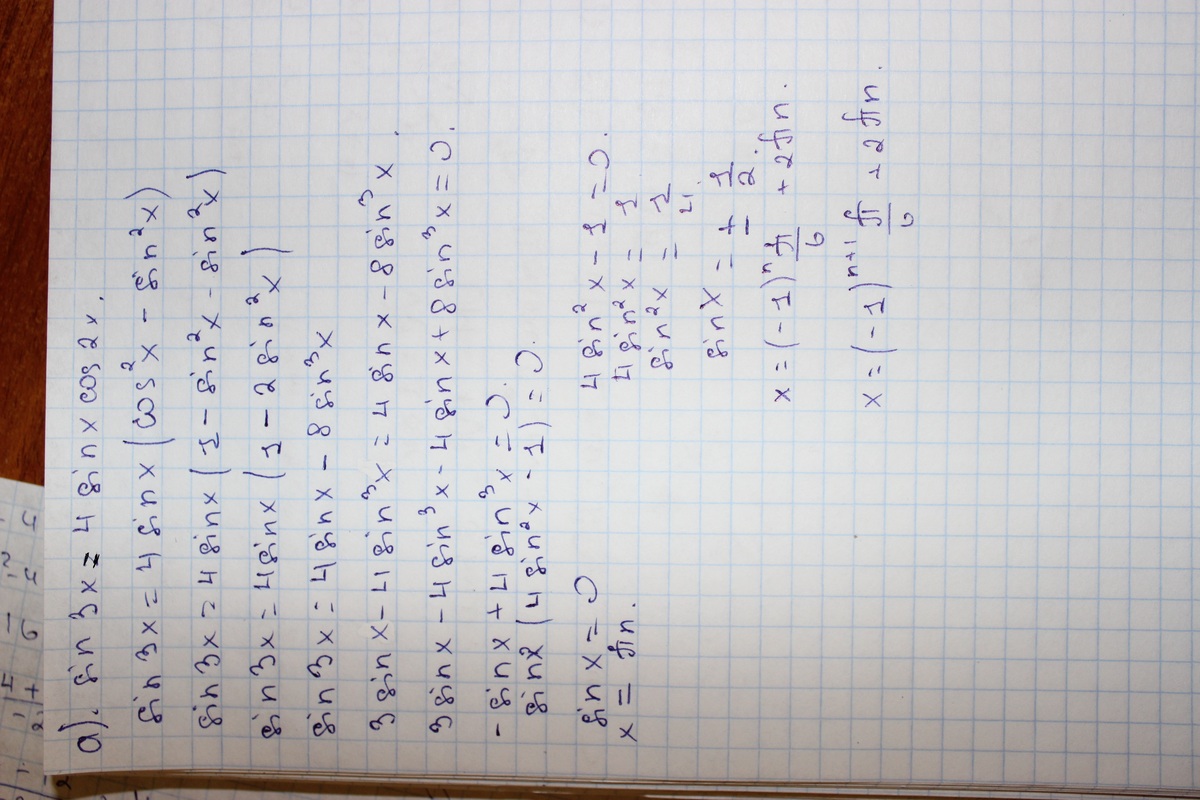 а). sin 3x = 4 sin x cos 2x.
sin 3x = 4 sin x (cos²x - sin²x)
sin 3x = 4 sin x (1 - sin²x - sin²x)
sin 3x = 4 sin x (1 - 2 sin²x)
sin 3x = 4 sin x - 8 sin³x
3 sin x - 4 sin³x = 4 sin x - 8 sin³x.
3 sin x - 4 sin³x - 4 sin x + 8 sin³x = 0.
- sin x + 4 sin³x = 0.
sin x (4 sin²x - 1) = 0.
sin x = 0
x = πn.
4 sin²x - 1 = 0.
4 sin²x = 1
sin²x = 1/4
sin x = ± 1/2.
x = (-1)ⁿ π/6 + 2πn.
x = (-1)ⁿ⁺¹ π/6 + 2πn.